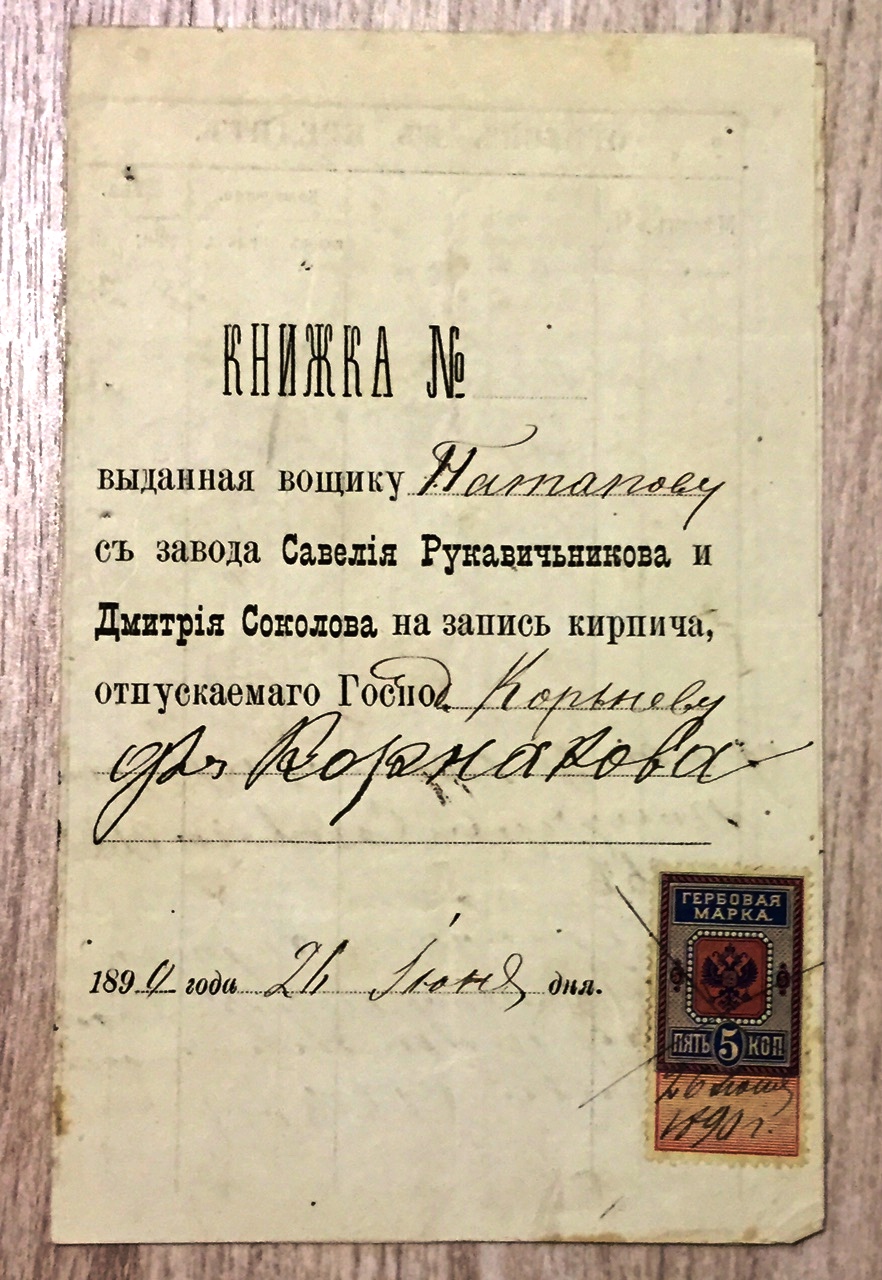 КНИЖКА №
выданная вощику Патапову
съ завода Савелія Рукавичьникова и
Дмитрія Соколова на запись кирпича,
отпускаемаго Господ. Корьневу
для Корнакова
1890 года 26 Іюня дня.
ГЕРБОВАЯ
МАРКА.
ПЯТЬ 5 КОП
26 Іюня
1890 г.